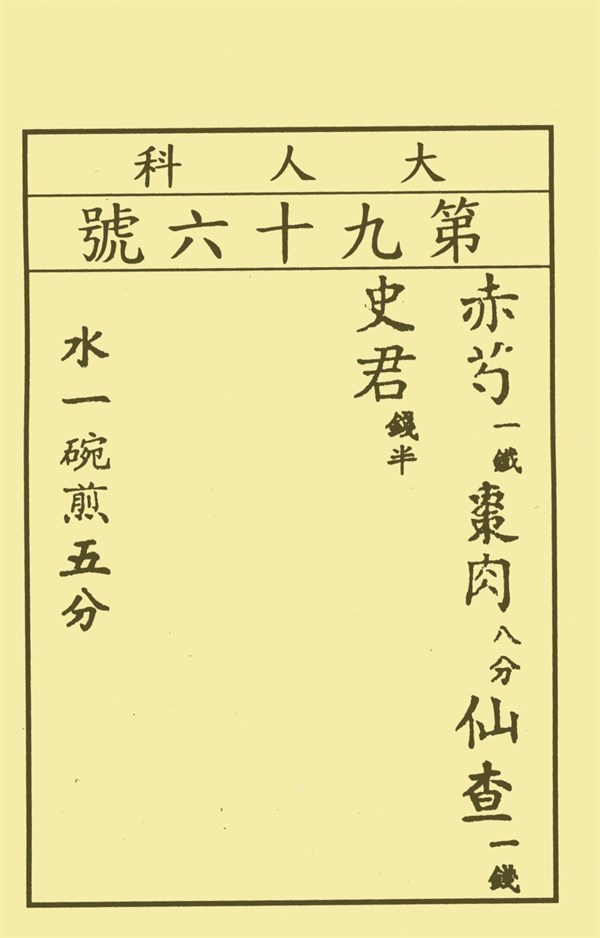 大人科
第九十六號
赤芍一錢棗肉八分仙查一錢
史君錢半
水一碗煎五分